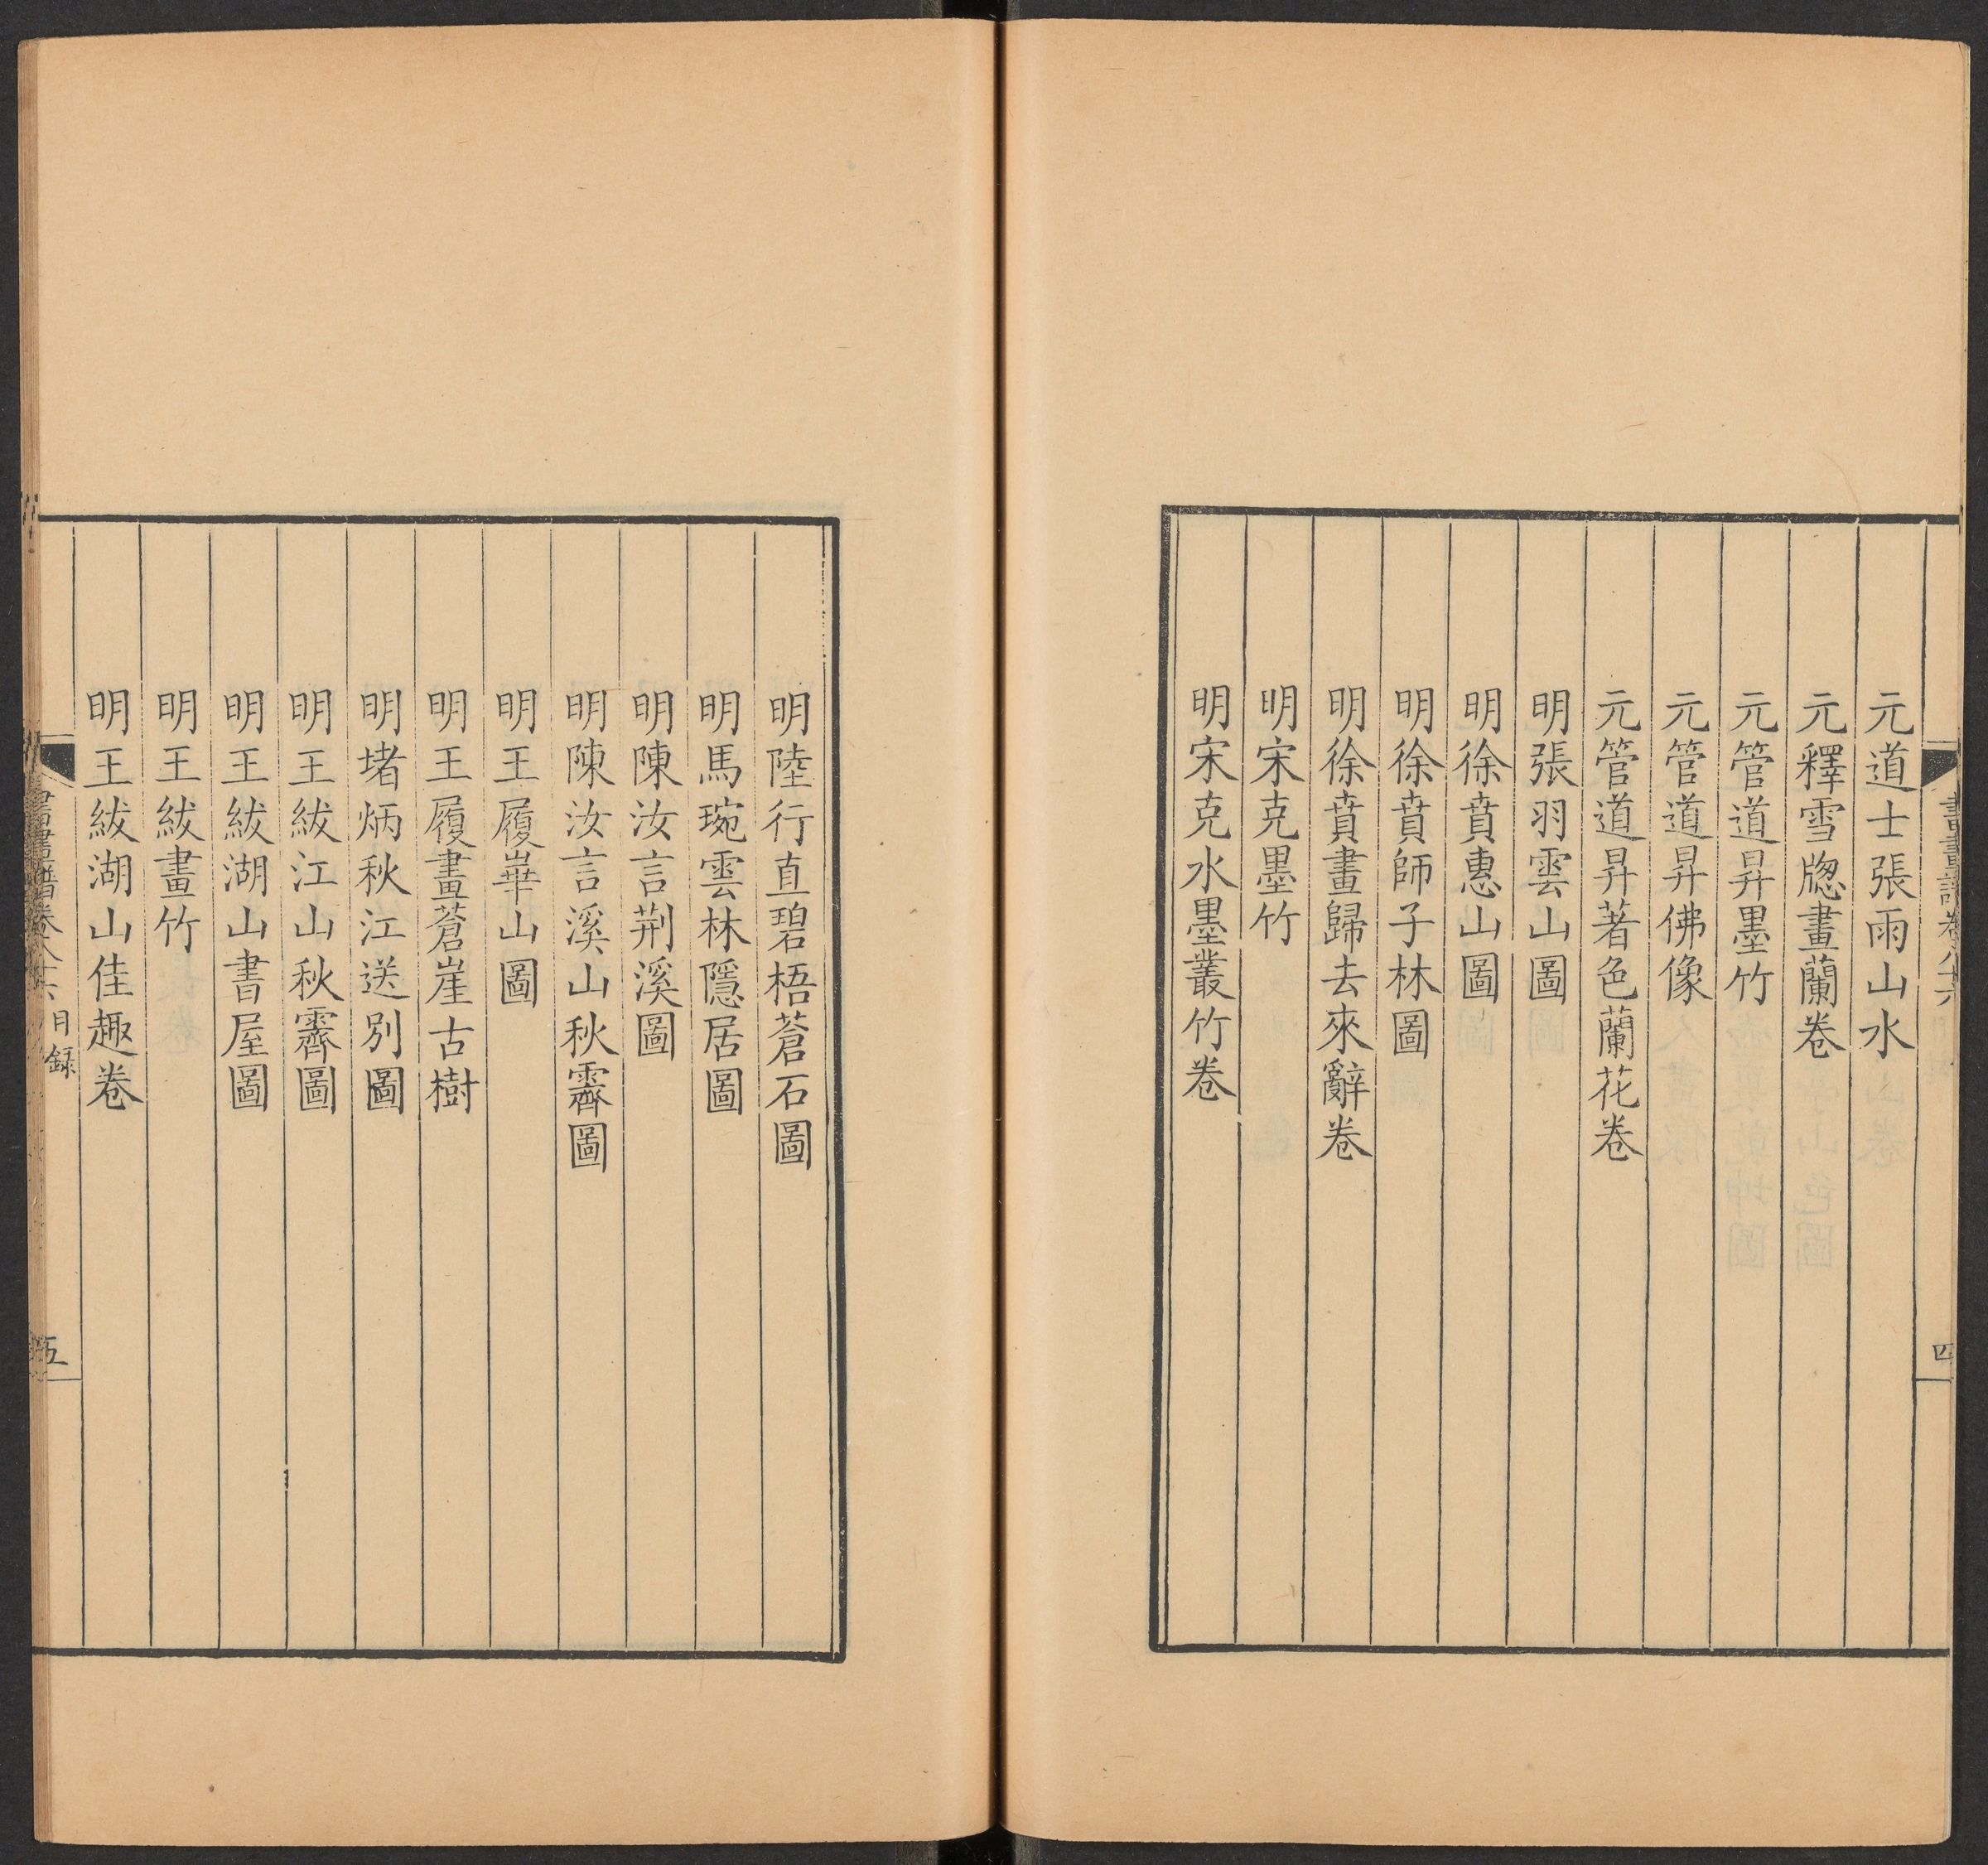 書畫譜卷八十六
四
元道士張雨山水
元釋雪牕畫蘭卷
元管道昇墨竹
元管道昇佛像
元管道昇著色蘭花卷
明張羽雲山圖
明徐賁惠山圖
明徐賁師子林圖
明徐賁畫歸去來辭卷
明宋克墨竹
明宋克水墨叢竹卷
明陸行直碧梧蒼石圖
明馬琬雲林隱居圖
明陳汝言荆溪圖
明陳汝言溪山秋霽圖
明王履崋山圖
明王履畫蒼崖古樹
明堵炳秋江送別圖
明王紱江山秋霽圖
明王紱湖山書屋圖
明王紱畫竹
明王紱湖山佳趣卷
書畫譜卷八十六目錄
五